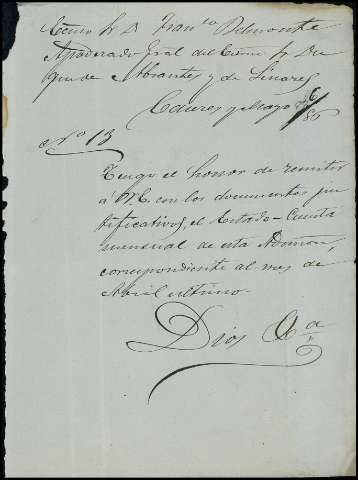 Excmo Sr D. Franco Belmonte
Apoderado Gral del Excmo Sr Du
que de Abrantes y de Linares
Caceres y Mayo /86
No 13
Tengo el honor de remitir
á V.E. con los documentos jus
tificativos, el Estado-Cuenta
mensual de esta Admon,
correspondiente al mes de
Abril ultimo.
Dios &a